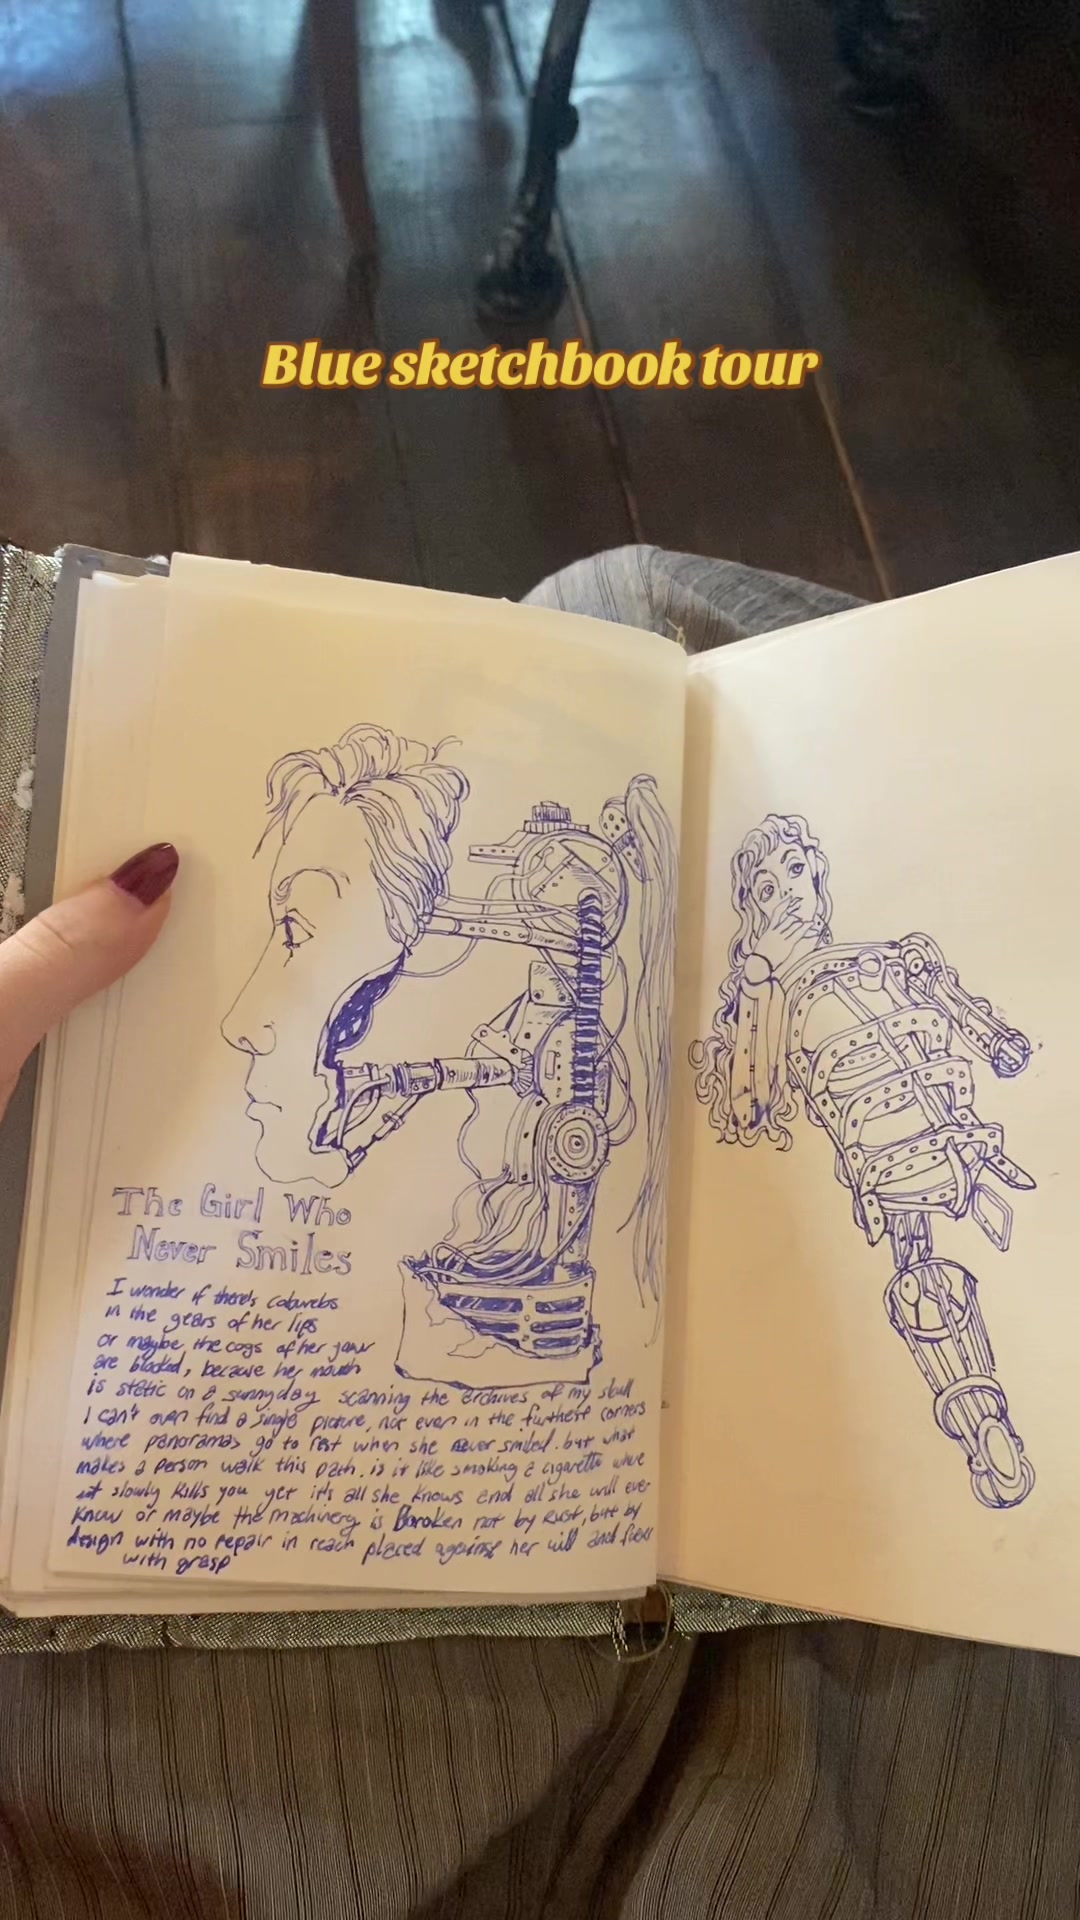 Blue sketchbook tour
The Girl Who
Never Smiles
I wonder if there's cobwebs
in the gears of her lips
or maybe the cogs of her jaw
are blocked, because her mouth
is static on a sunny day scanning the archives of my skull
I can't even find a single picture, not even in the furthest corners
where panoramas go to rest when she never smiled. but what
makes a person walk this path. is it like smoking a cigarette where
it slowly kills you yet it's all she knows and all she will ever
know or maybe the machinery is Boroken not by rust, but by
design with no repair in reach placed against her will and
with grasp